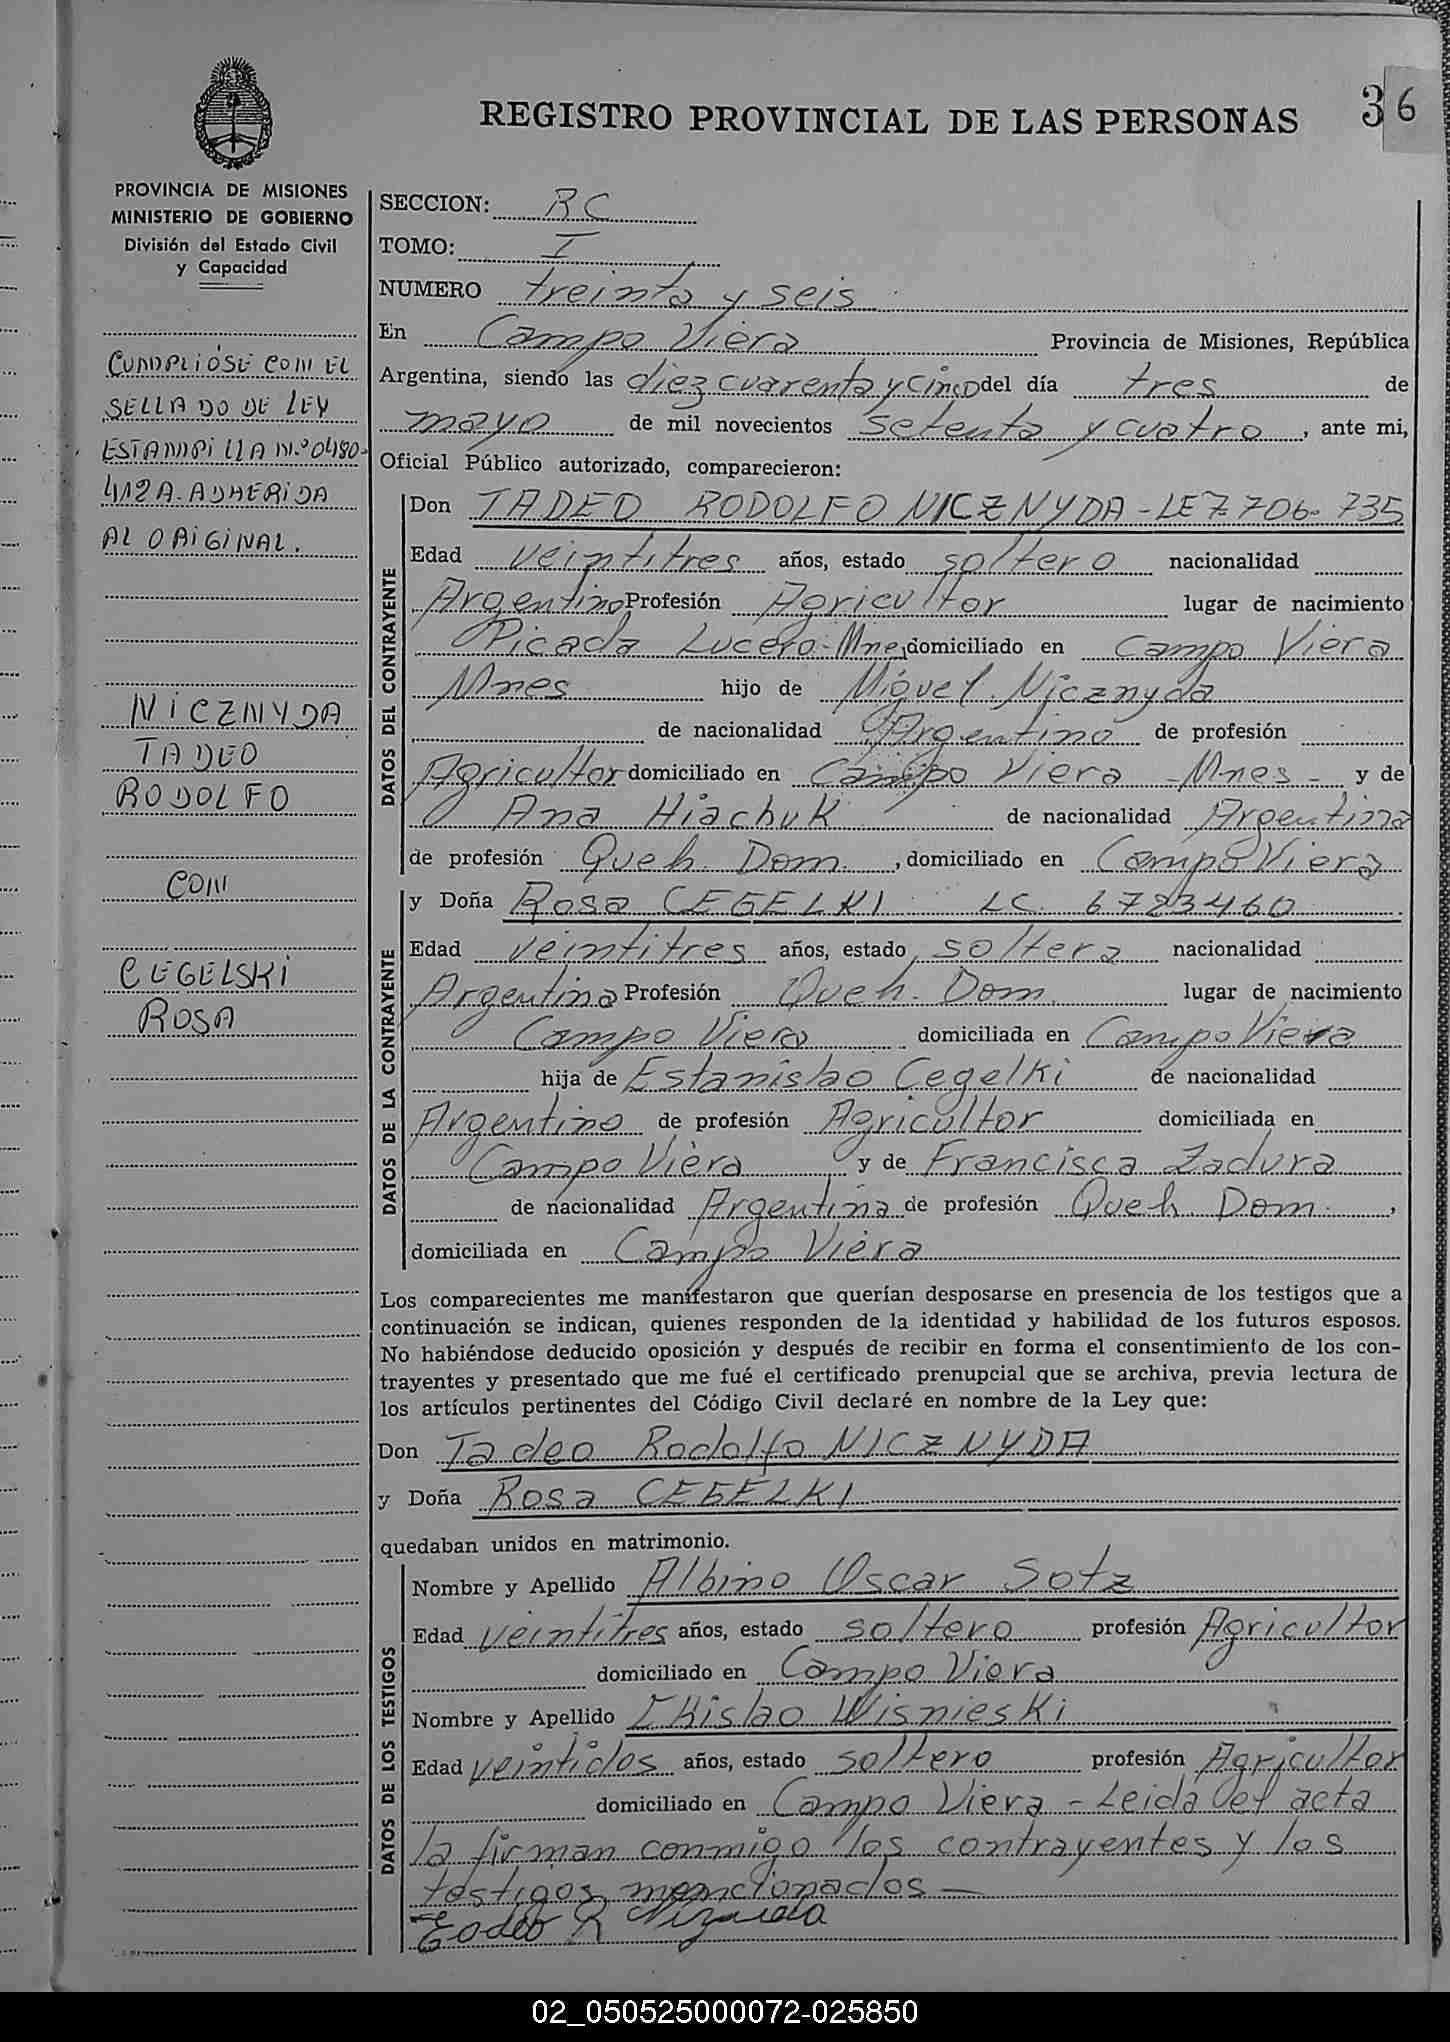 REGISTRO PROVINCIAL DE LAS PERSONAS
36
PROVINCIA DE MISIONES
MINISTERIO DE GOBIERNO
División del Estado Civil
y Capacidad
CUMPLIÓSE CON EL
SELLADO DE LEY
ESTAMPILLA N.º 0480-
412A. ADHERIDA
AL ORIGINAL.
NICZNYDA
TADEO
RODOLFO
CON
CEGELSKI
ROSA
SECCION: RC
TOMO: I
NUMERO treinta y seis
En Campo Viera Provincia de Misiones, República
Argentina, siendo las diez cuarenta y cinco del día tres de
mayo de mil novecientos setenta y cuatro, ante mi,
Oficial Público autorizado, comparecieron:
DATOS DEL CONTRAYENTE
Don TADEO RODOLFO NICZNYDA - LE 7.706.735
Edad veintitres años, estado soltero nacionalidad
Argentino Profesión Agricultor lugar de nacimiento
Picada Lucero - Mnes domiciliado en Campo Viera
Mnes hijo de Miguel Nicznyda
de nacionalidad Argentino de profesión
Agricultor domiciliado en Campo Viera - Mnes - y de
Ana Hiachuk de nacionalidad Argentina
de profesión Queh. Dom. , domiciliado en Campo Viera
DATOS DE LA CONTRAYENTE
y Doña Rosa CEGELKI LC. 6723460
Edad veintitres años, estado soltera nacionalidad
Argentina Profesión Queh. Dom. lugar de nacimiento
Campo Viera domiciliada en Campo Viera
hija de Estanislao Cegelki de nacionalidad
Argentino de profesión Agricultor domiciliada en
Campo Viera y de Francisca Zadura
de nacionalidad Argentina de profesión Queh Dom. ,
domiciliada en Campo Viera
Los comparecientes me manifestaron que querían desposarse en presencia de los testigos que a
continuación se indican, quienes responden de la identidad y habilidad de los futuros esposos.
No habiéndose deducido oposición y después de recibir en forma el consentimiento de los con-
trayentes y presentado que me fué el certificado prenupcial que se archiva, previa lectura de
los artículos pertinentes del Código Civil declaré en nombre de la Ley que:
Don Tadeo Rodolfo NICZNYDA
y Doña Rosa CEGELKI
quedaban unidos en matrimonio.
DATOS DE LOS TESTIGOS
Nombre y Apellido Albino Oscar Sotz
Edad veintitres años, estado soltero profesión Agricultor
domiciliado en Campo Viera
Nombre y Apellido Wisnieski
Edad veintidos años, estado soltero profesión Agricultor
domiciliado en Campo Viera - Leida el acta
la firman conmigo los contrayentes y los
testigos mencionados -
02_050525000072-025850